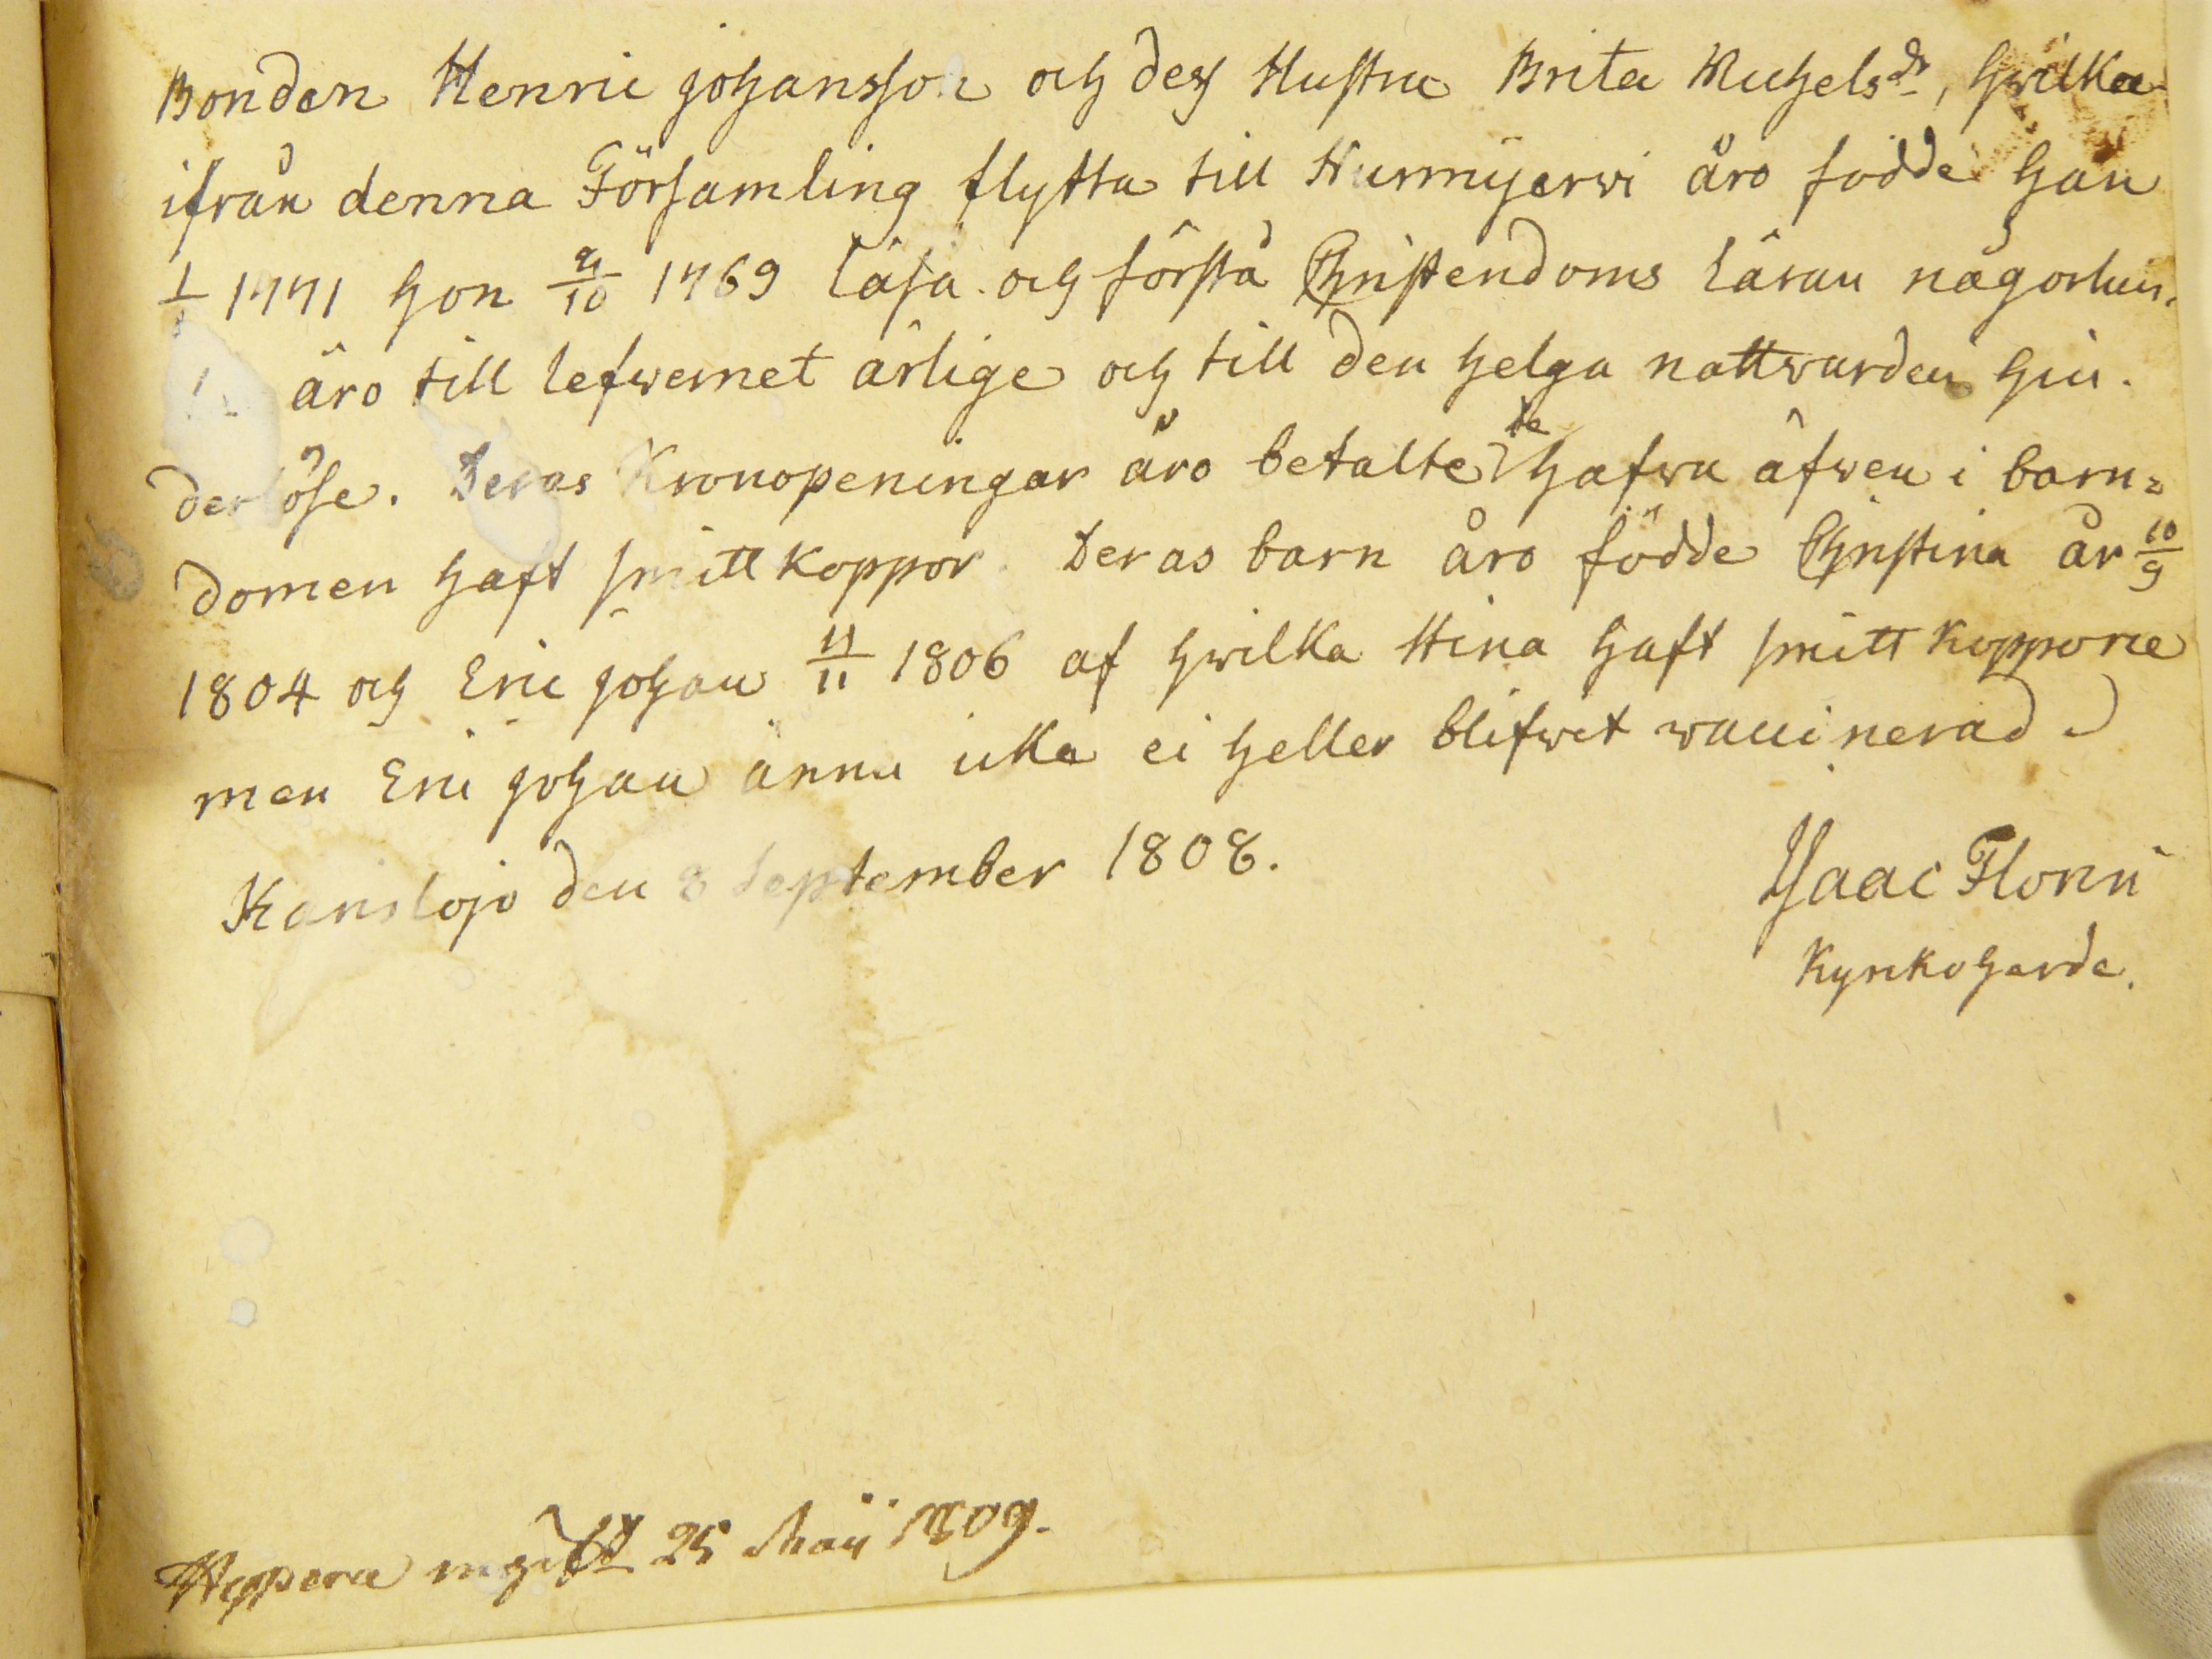 Bonden Henric Johansson och dess Hustru Brita Michelsdr, hwilka
ifrån denna Församling flytta till Nurmijerwi äro födde han
1/1 1771 hon 21/10 1769 läsa och förstå Christendoms läran någorlun-
äro till lefwernet ärlige och till den helga nattwarden hin-
derlöse. Deras Kronopeningar äro betalte de hafwa äfwen i barn=
domen haft smittkoppor. Deras barn äro födde Christina år 10/9
1804 och Eric Johan 11/11 1806 af hwilka Stina haft smittkopporne
men Eric Johan ännu icke ei heller blifwit waccinerad.
Karislojo den 8 September 1808.
Isaac Florin
Kyrkoherde.
25 Maji 1809.